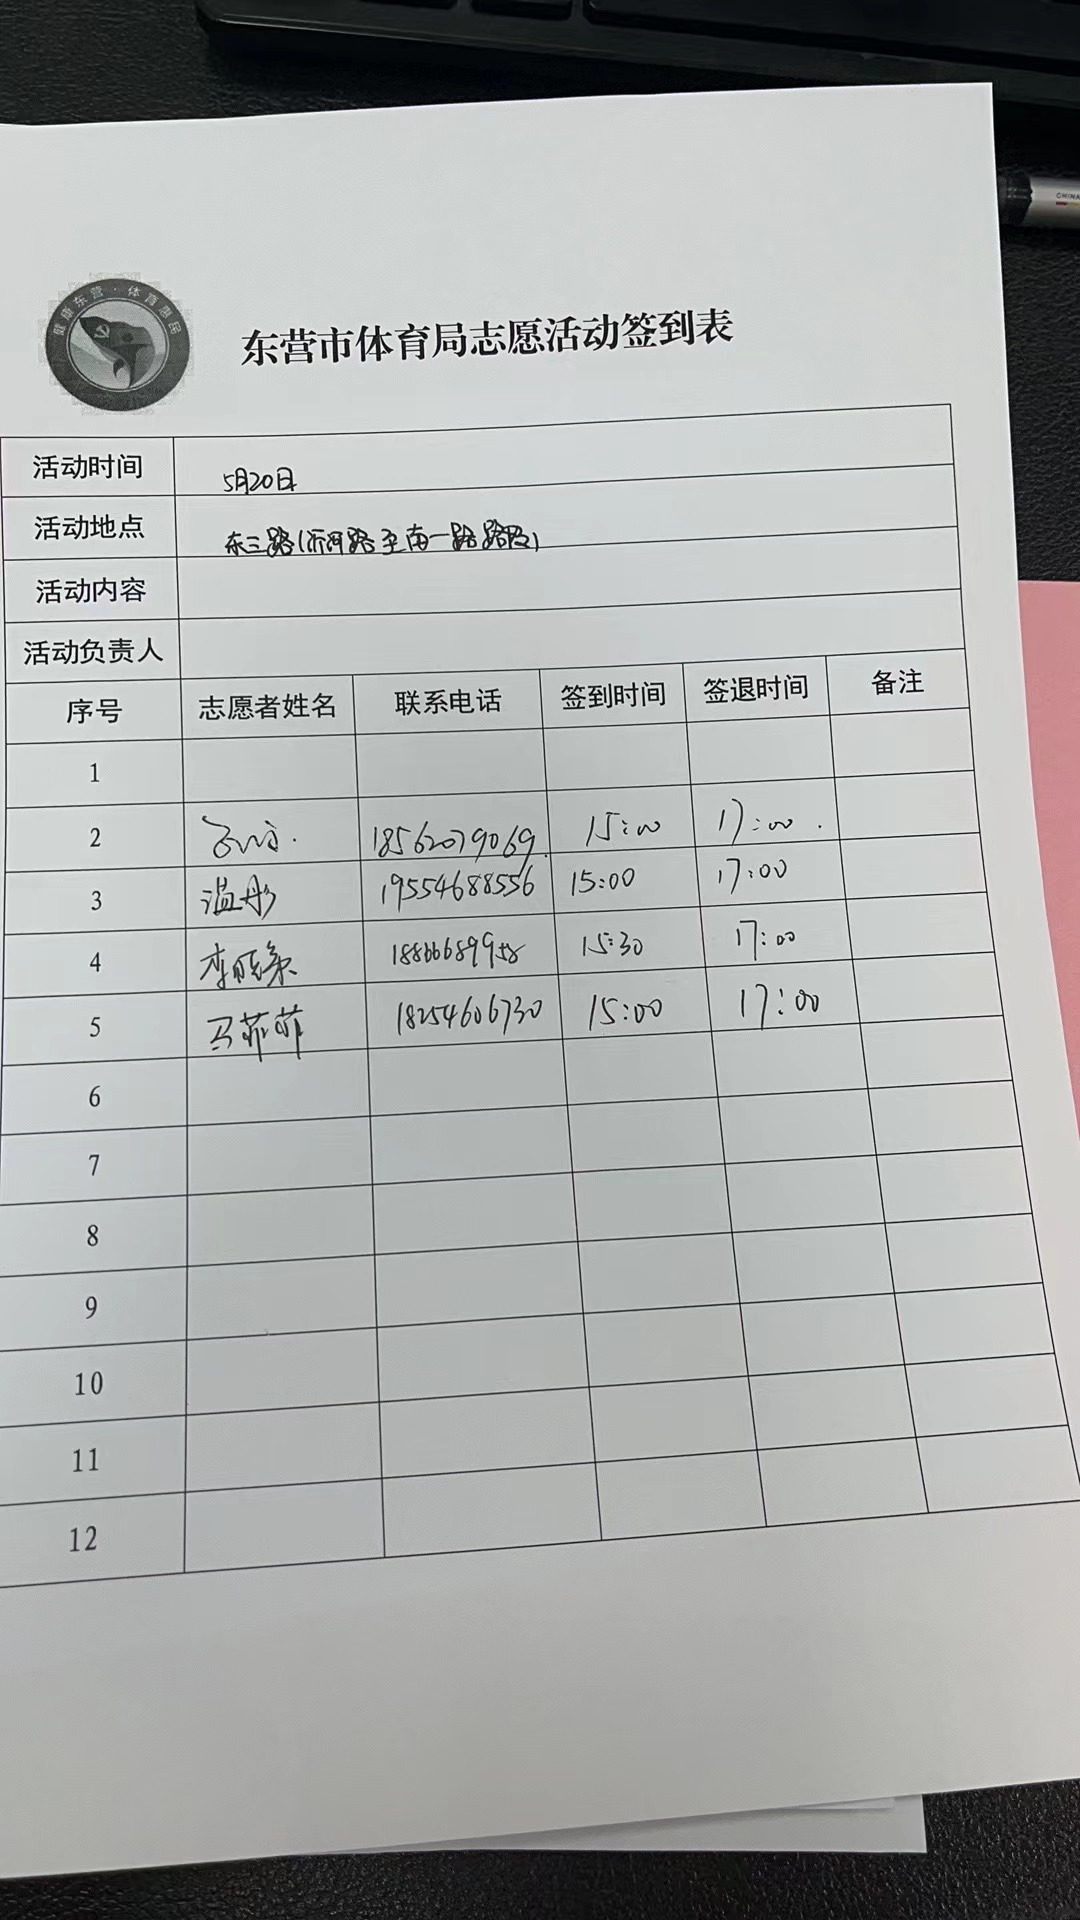 CHINA
健康东营·体育惠民
东营市体育局志愿活动签到表
活动时间 5月20日
活动地点 东三路(沂河路至南一路路段)
活动内容
活动负责人
序号 志愿者姓名 联系电话 签到时间 签退时间 备注
1
2 18562079069 15:00 17:00
3 温彤 19554688556 15:00 17:00
4 李晓 15:30 17:00
5 马菲菲 18254606730 15:00 17:00
6
7
8
9
10
11
12